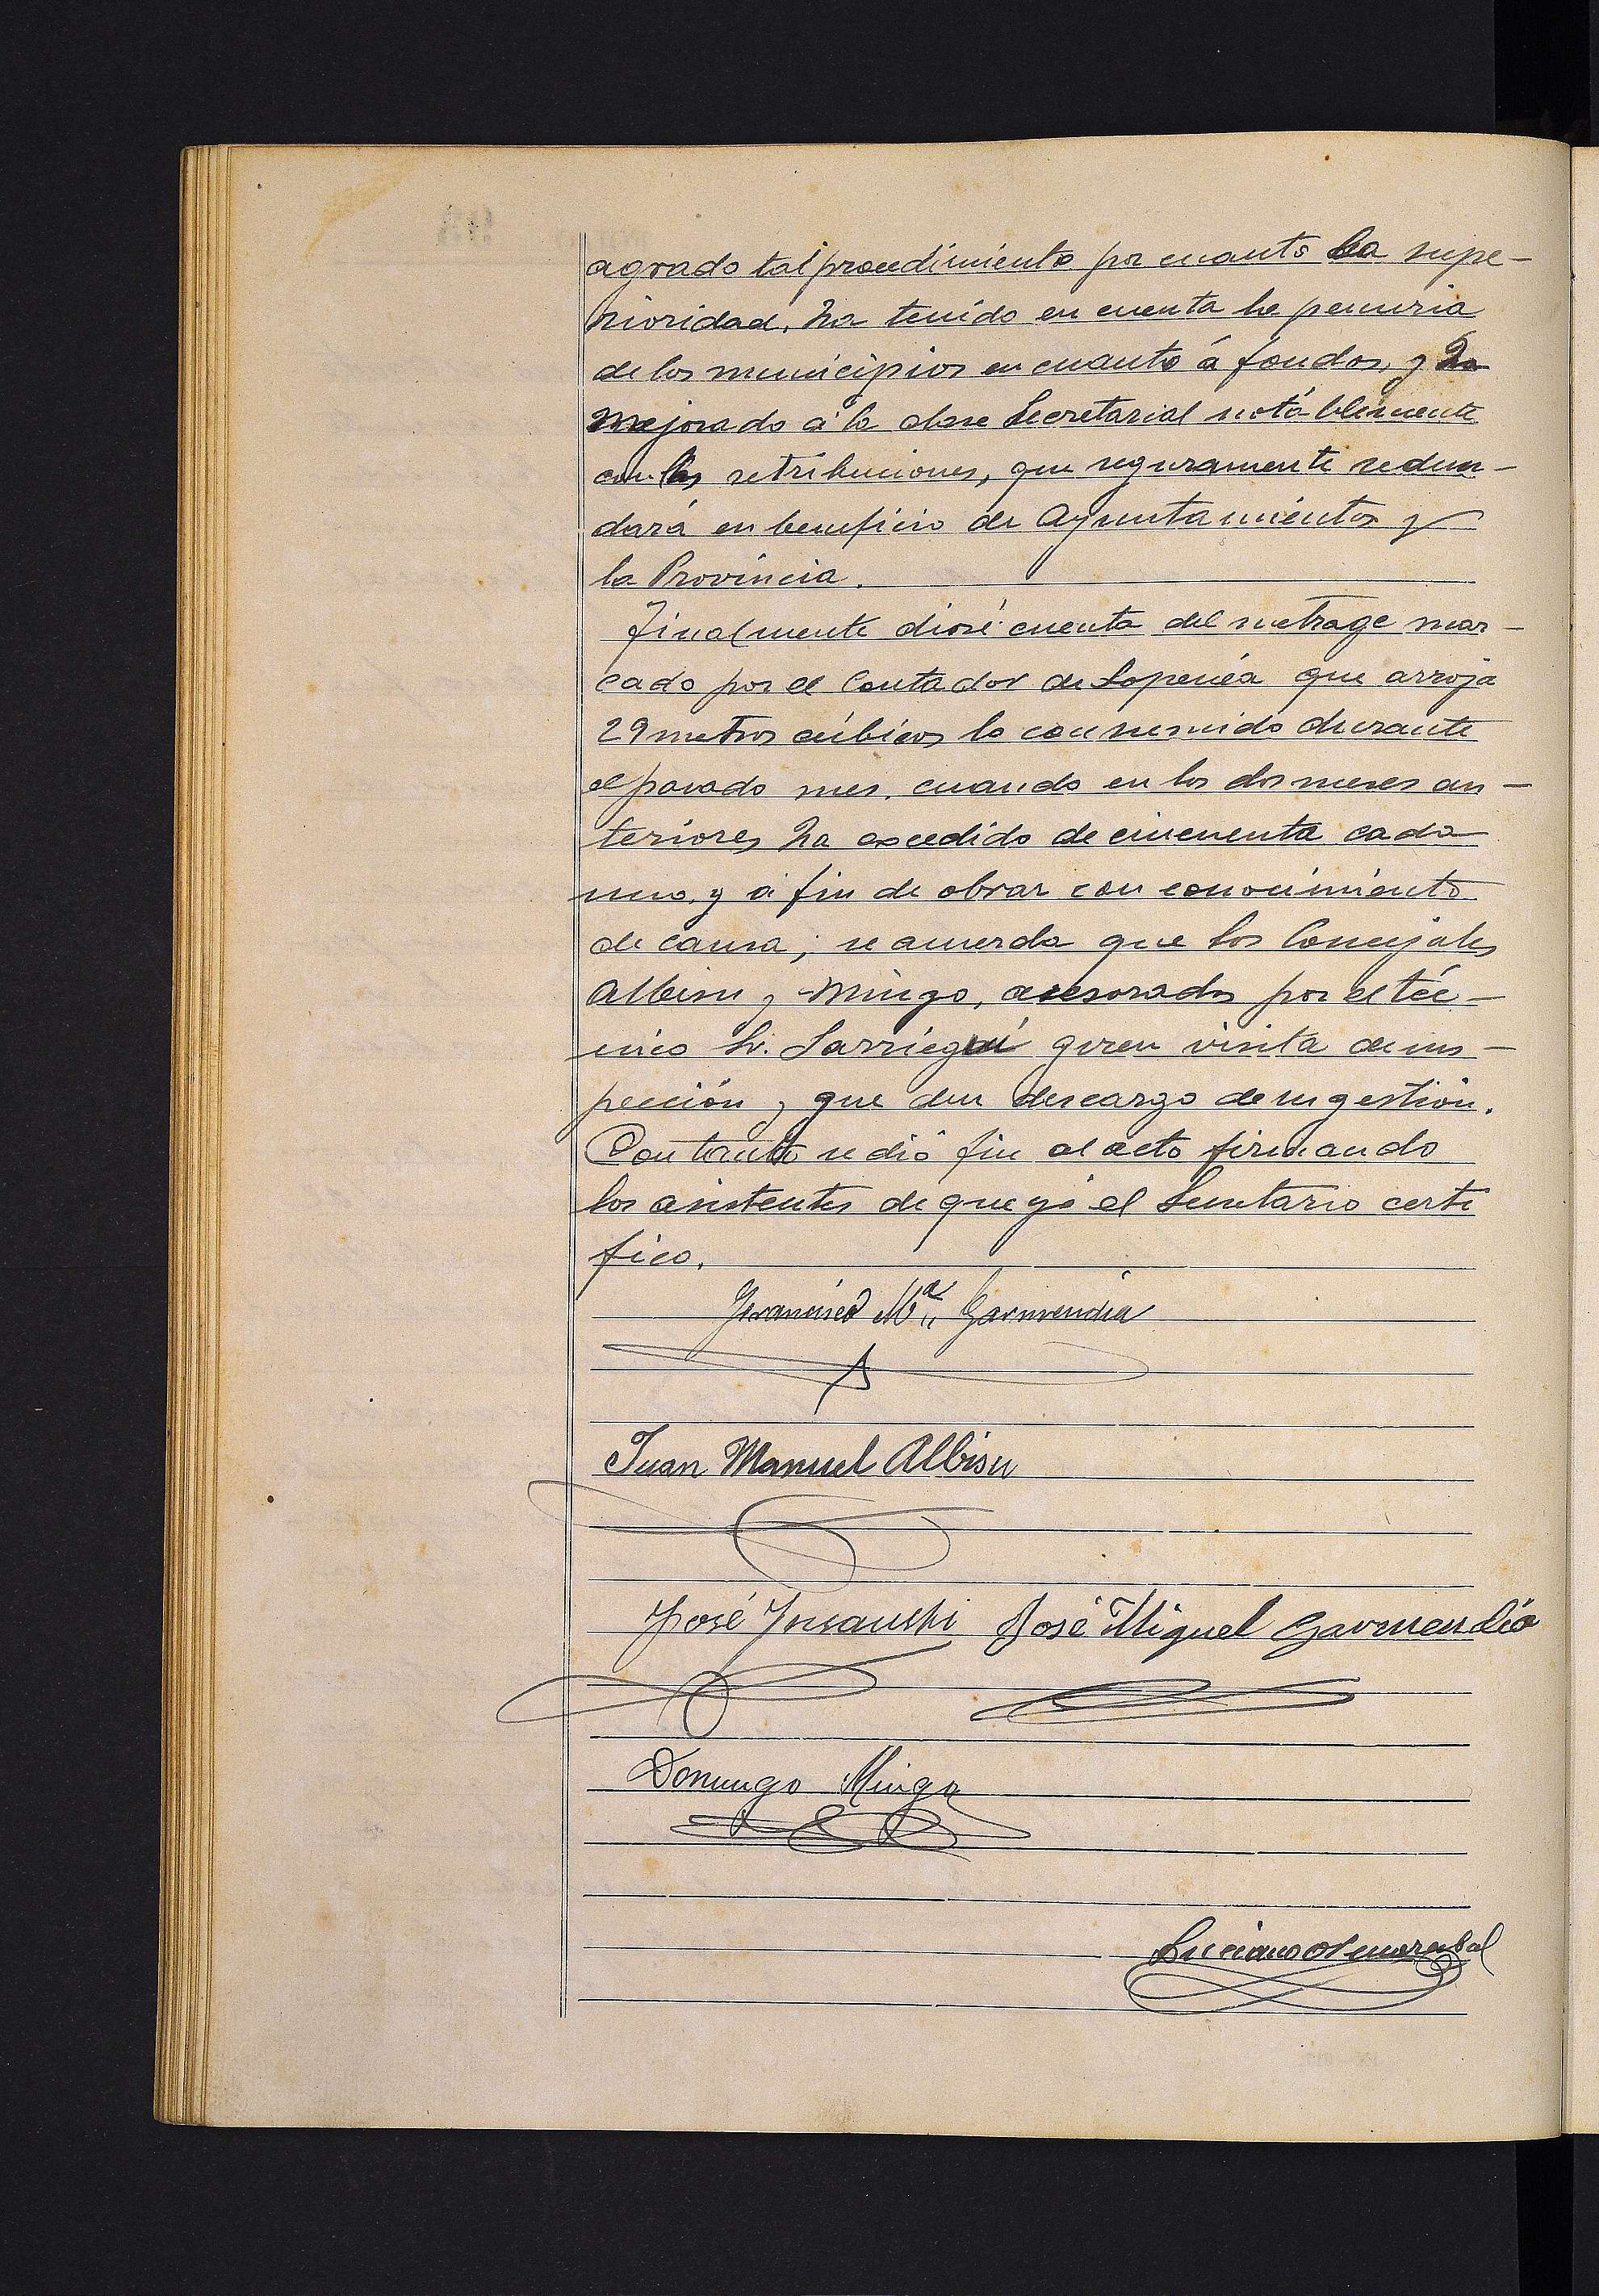 agrado tal procedimiento por cuanto la supe-
rioridad, ha tenido en cuenta la penuria
de los municipios en cuanto á fondos, y ha
mejorado á la clase Secretarial notablemente
con las retribuciones, que seguramente redun-
dará en beneficio de Ayuntamientos y
la Provincia.
Finalmente dióse cuenta del metrage mar-
cado por el Contador de Lopenéa que arroja
29 metros cúbicos lo consumido durante
el pasado mes, cuando en los dos meses an-
teriores ha excedido de cincuenta cada
uno, y á fin de obrar con conocimiento
de causa; se acuerda que los Concejales
Albisu y Mingo, asesorados por el téc-
nico Sr. Sarriegui giren visita de ins-
pección y que den descargo de su gestión.
Con tanto se dió fin al acto firmando
los asistentes de que yó el Secretario certi
fico.
Francisco Mª Garmendia
Juan Manuel Albisu
José Insausti José Miguel Garmendia
Domingo Mingo
Luciano